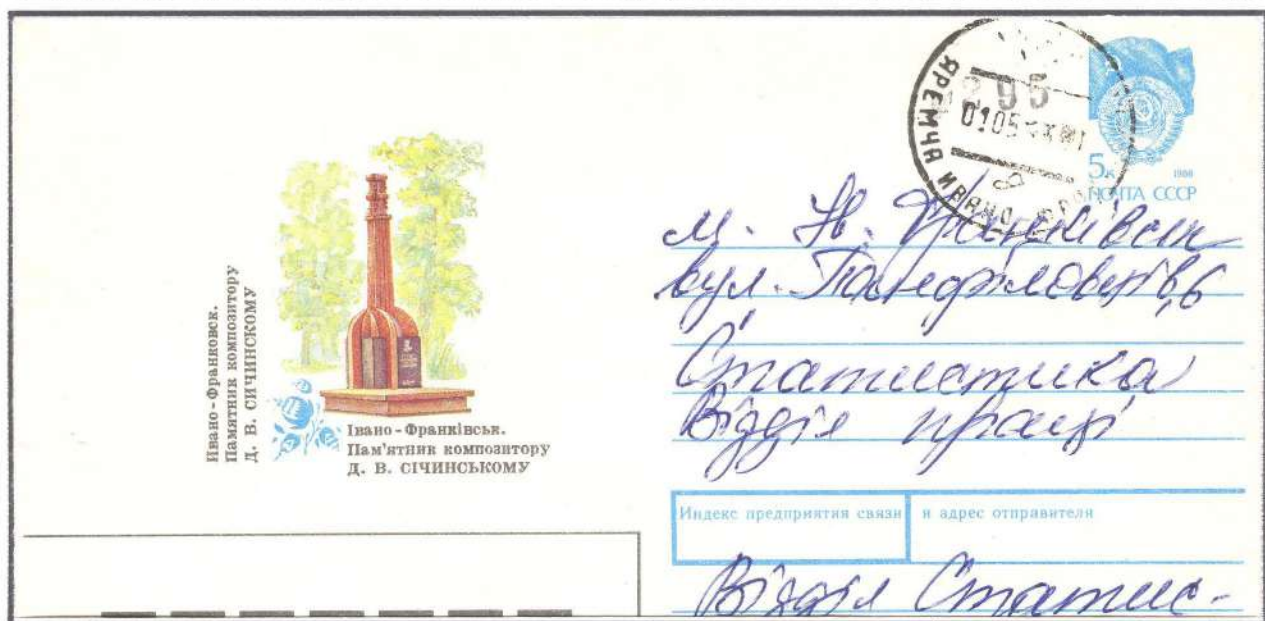 Ивано-Франковск.
Памятник композитору
Д. В. СИЧИНСКОМУ
Івано-Франківськ.
Пам'ятник композитору
Д. В. СІЧИНСЬКОМУ
ЯРЕМЧА ИВАНО
295
0105
5к 1988
ПОЧТА СССР
м. Ів. Франківськ
вул. Панфіловців, 6
Статистика
Відділ праці
Индекс предприятия связи и адрес отправителя
Відділ Статис-